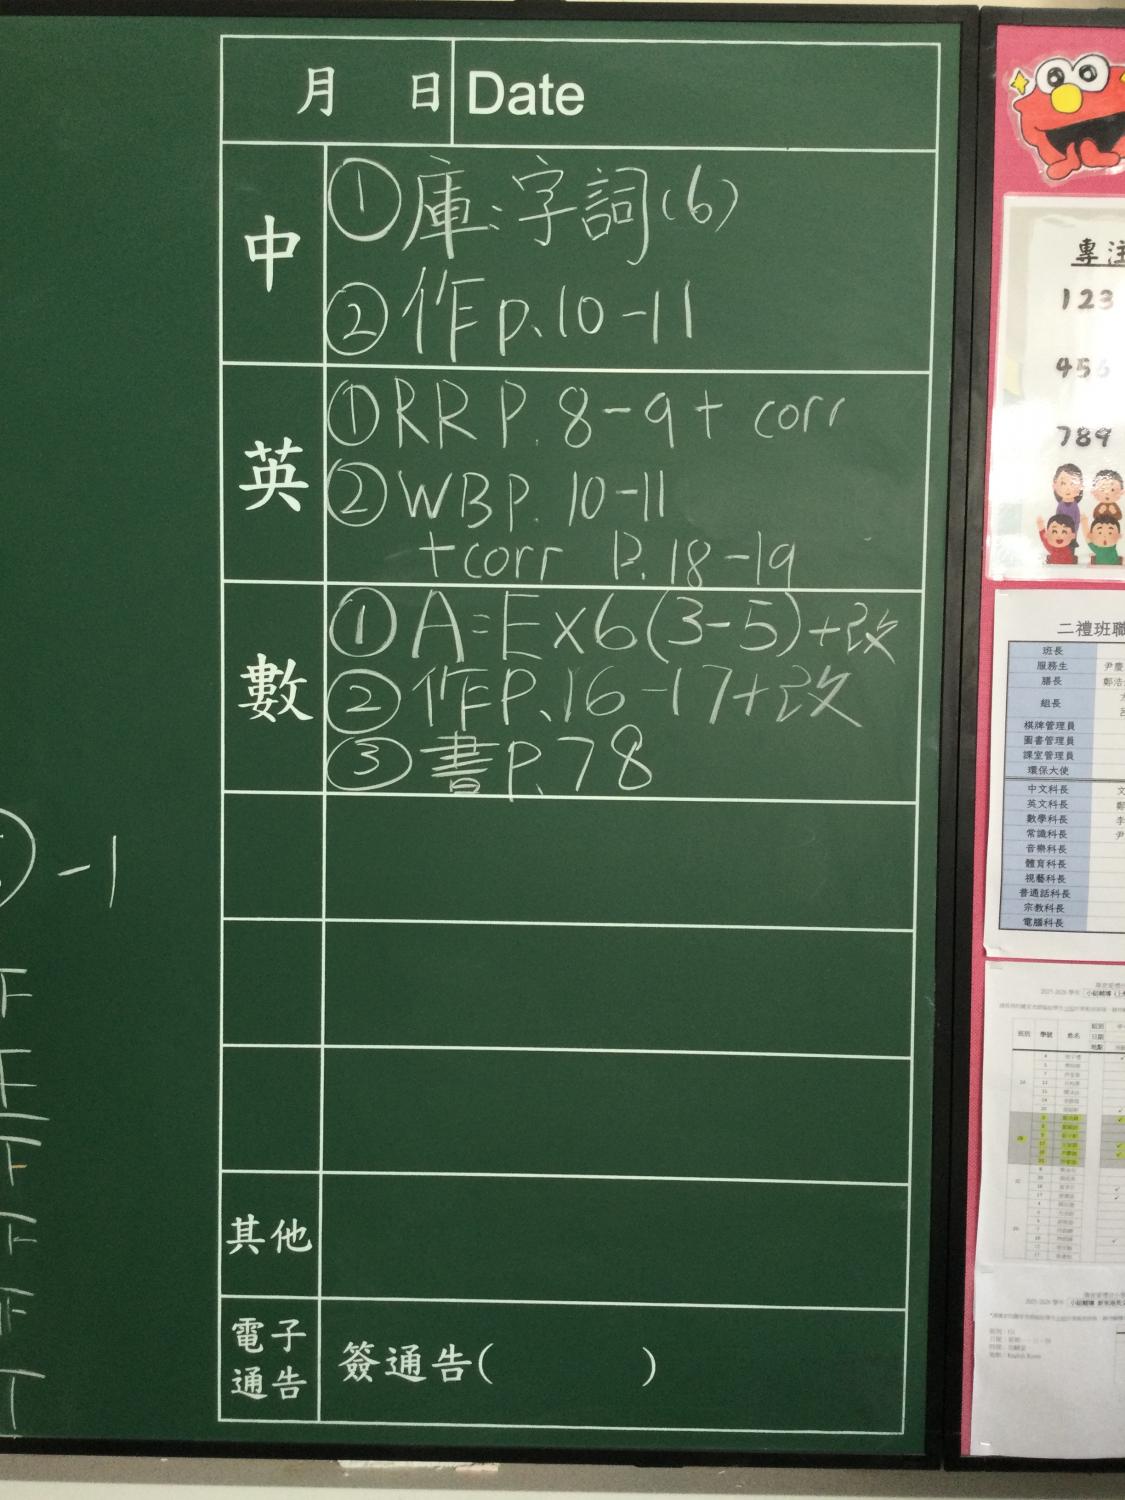 月 日 Date
中
①庫:字詞(6)
②作p.10-11
英
①RR P. 8-9+ corr
②WB P. 10-11
+corr P. 18-19
數
①A:Ex6(3-5)+改
②作P.16-17+改
③書p.78
其他
電子
通告
簽通告( )
-1
F
F
F
F
F
T
專注
123
456
789
二禮班職
班長
服務生 尹慶
膳長 鄭浩
組長
棋牌管理員
圖書管理員
課室管理員
環保大使
中文科長 文
英文科長 鄭
數學科長 李
常識科長 尹
音樂科長
體育科長
視藝科長
普通話科長
宗教科長
電腦科長
2025-2026 學年 小組輔導
班別 學號 姓名
組別
日期
地點